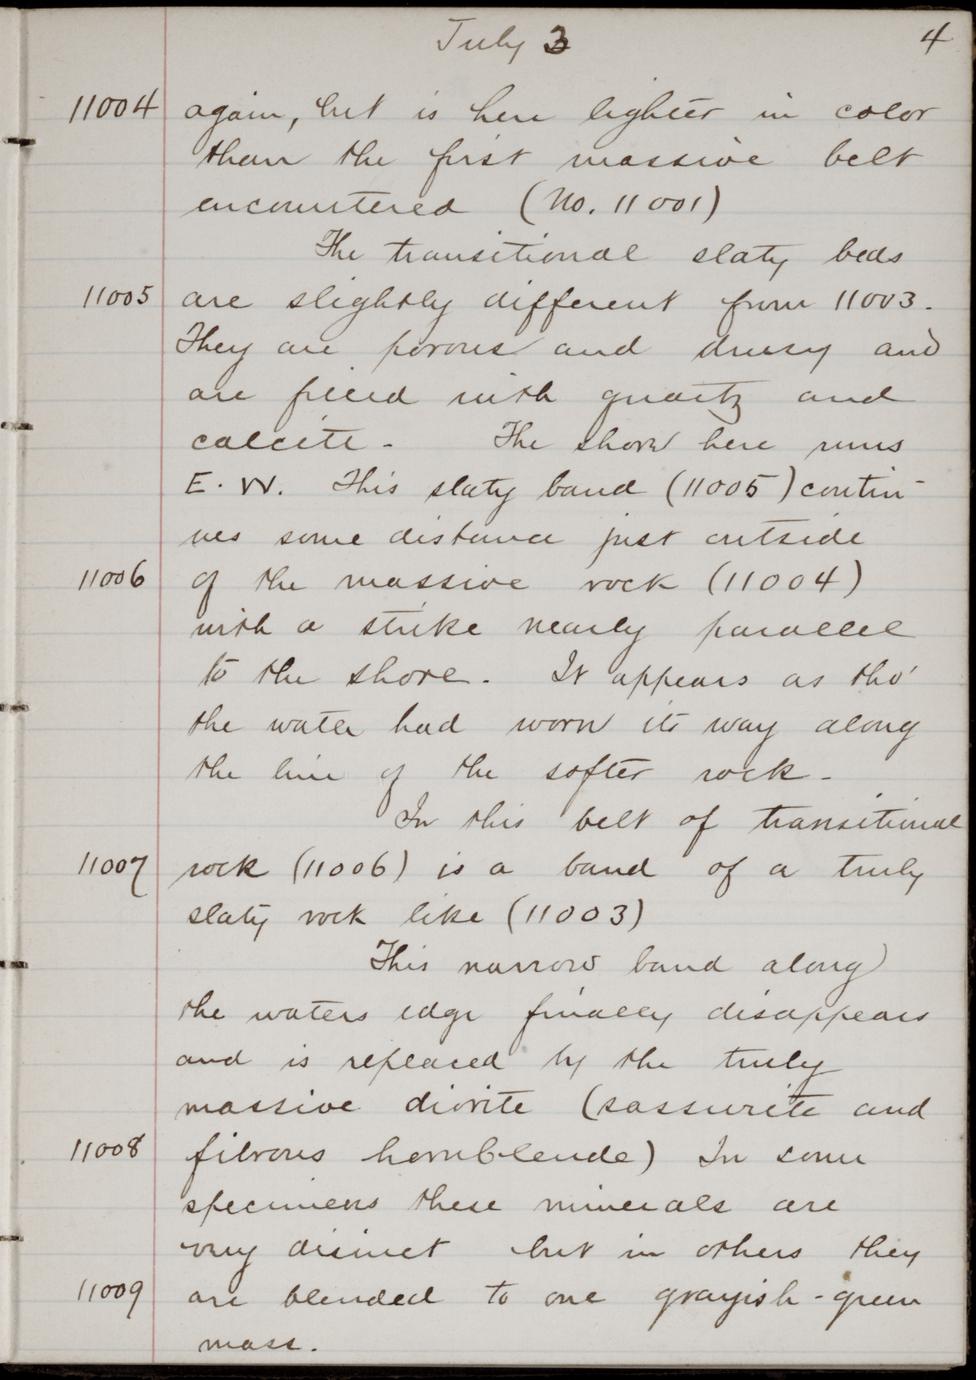 July 3
4
11004 again, but is here lighter in color
than the first massive belt
encountered (No. 11001)
The transitional slaty beds
11005 are slightly different from 11003.
They are porous and drusy and
are filled with quartz and
calcite. The shore here runs
E. W. This slaty band (11005) contin-
ues some distance just outside
11006 of the massive rock (11004)
with a strike nearly parallel
to the shore. It appears as tho'
the water had worn its way along
the line of the softer rock.
In this belt of transitional
11007 rock (11006) is a band of a truly
slaty rock like (11003)
This narrow band along
the waters edge finally disappears
and is replaced by the truly
massive diorite (sassurite and
11008 fibrous hornblende) In some
specimens these minerals are
very disinct but in others they
11009 are blended to one grayish-green
mass.